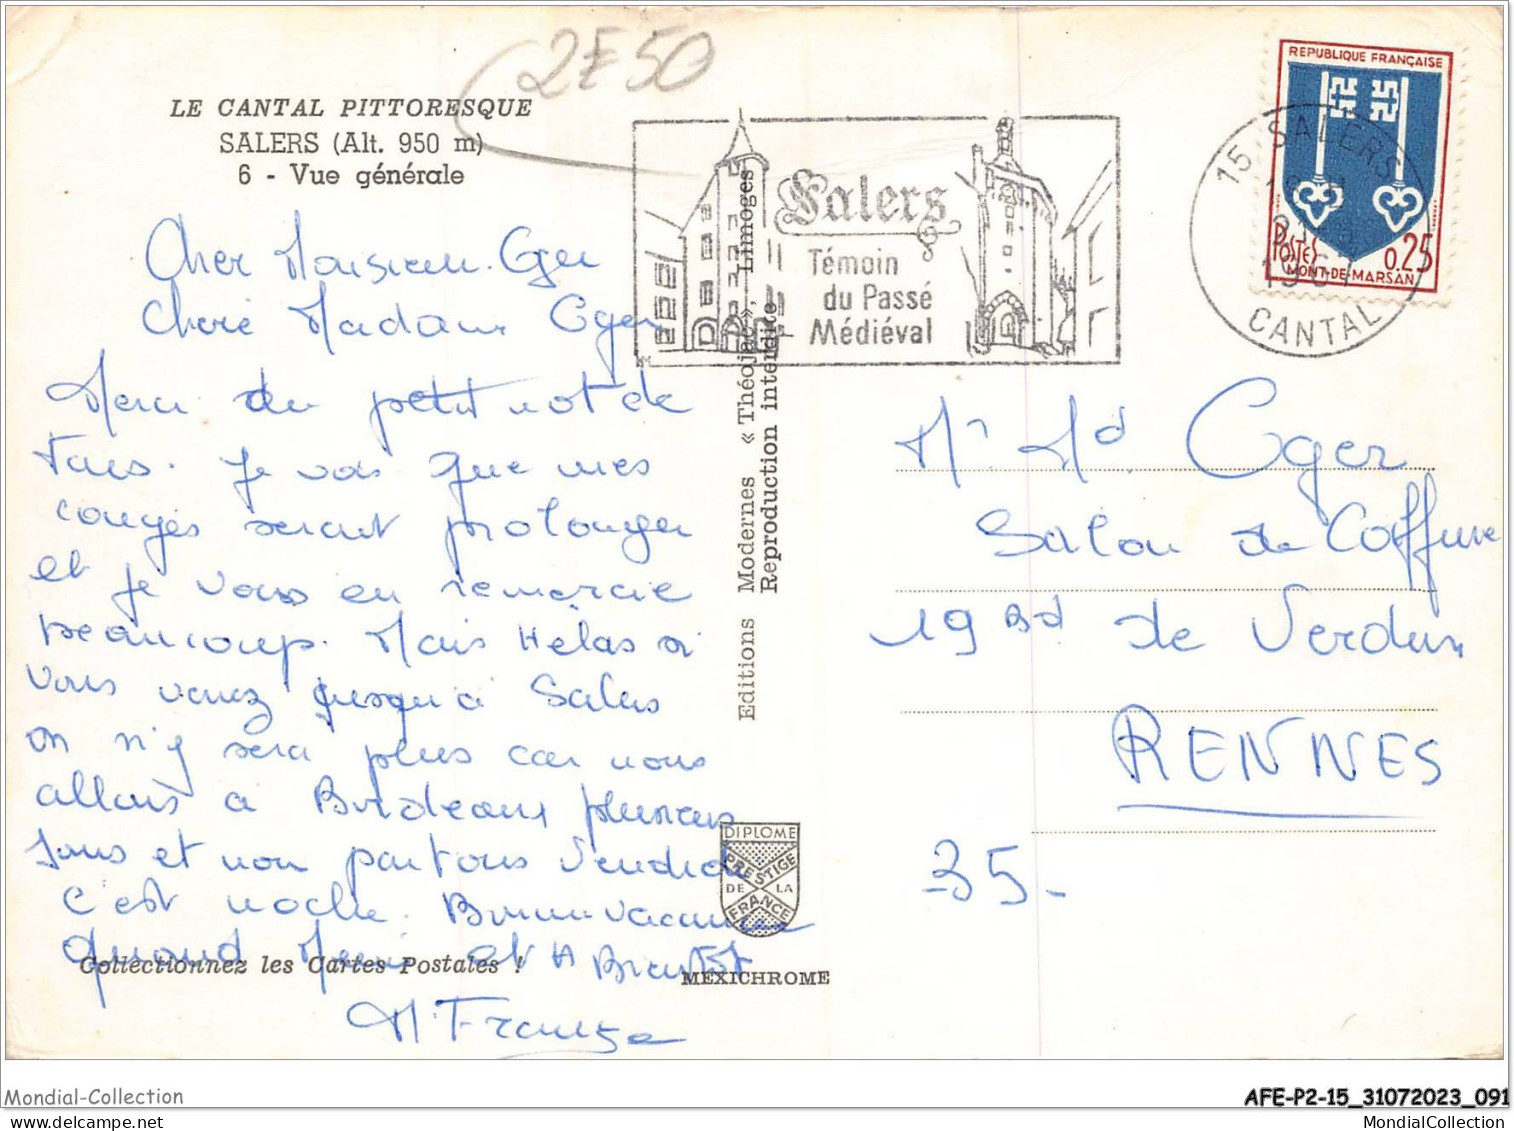 2F50
LE CANTAL PITTORESQUE
SALERS (Alt. 950 m)
6 - Vue générale
Cher Monsieur Oger
Chere Madame Oger
Merci du petit mot de
Je vois que mes
congés seront prolonger
et je vous en remercie
beaucoup. Mais Helas si
vous venez jusqu'a Salers
on n'y sera plus car nous
allons à Bordeaux plusieurs
jours et non partons Vendredi
c'est moche. Bonne vacance
quand Meme et A Bientot
Salers
Témoin
du Passé
Médiéval
REPUBLIQUE FRANÇAISE
POSTES 0,25
MONT-DE-MARSAN
15 SALERS
CANTAL
Editions Modernes « Théojac », Limoges
Reproduction interdite
Mr Md Oger
Salon de Coiffure
19 Bd de Verdun
RENNES
-35-
DIPLOME
PRESTIGE
DE LA
FRANCE
Collectionnez les Cartes Postales !
MEXICHROME
Mondial-Collection
AFE-P2-15_31072023_091
MondialCollection